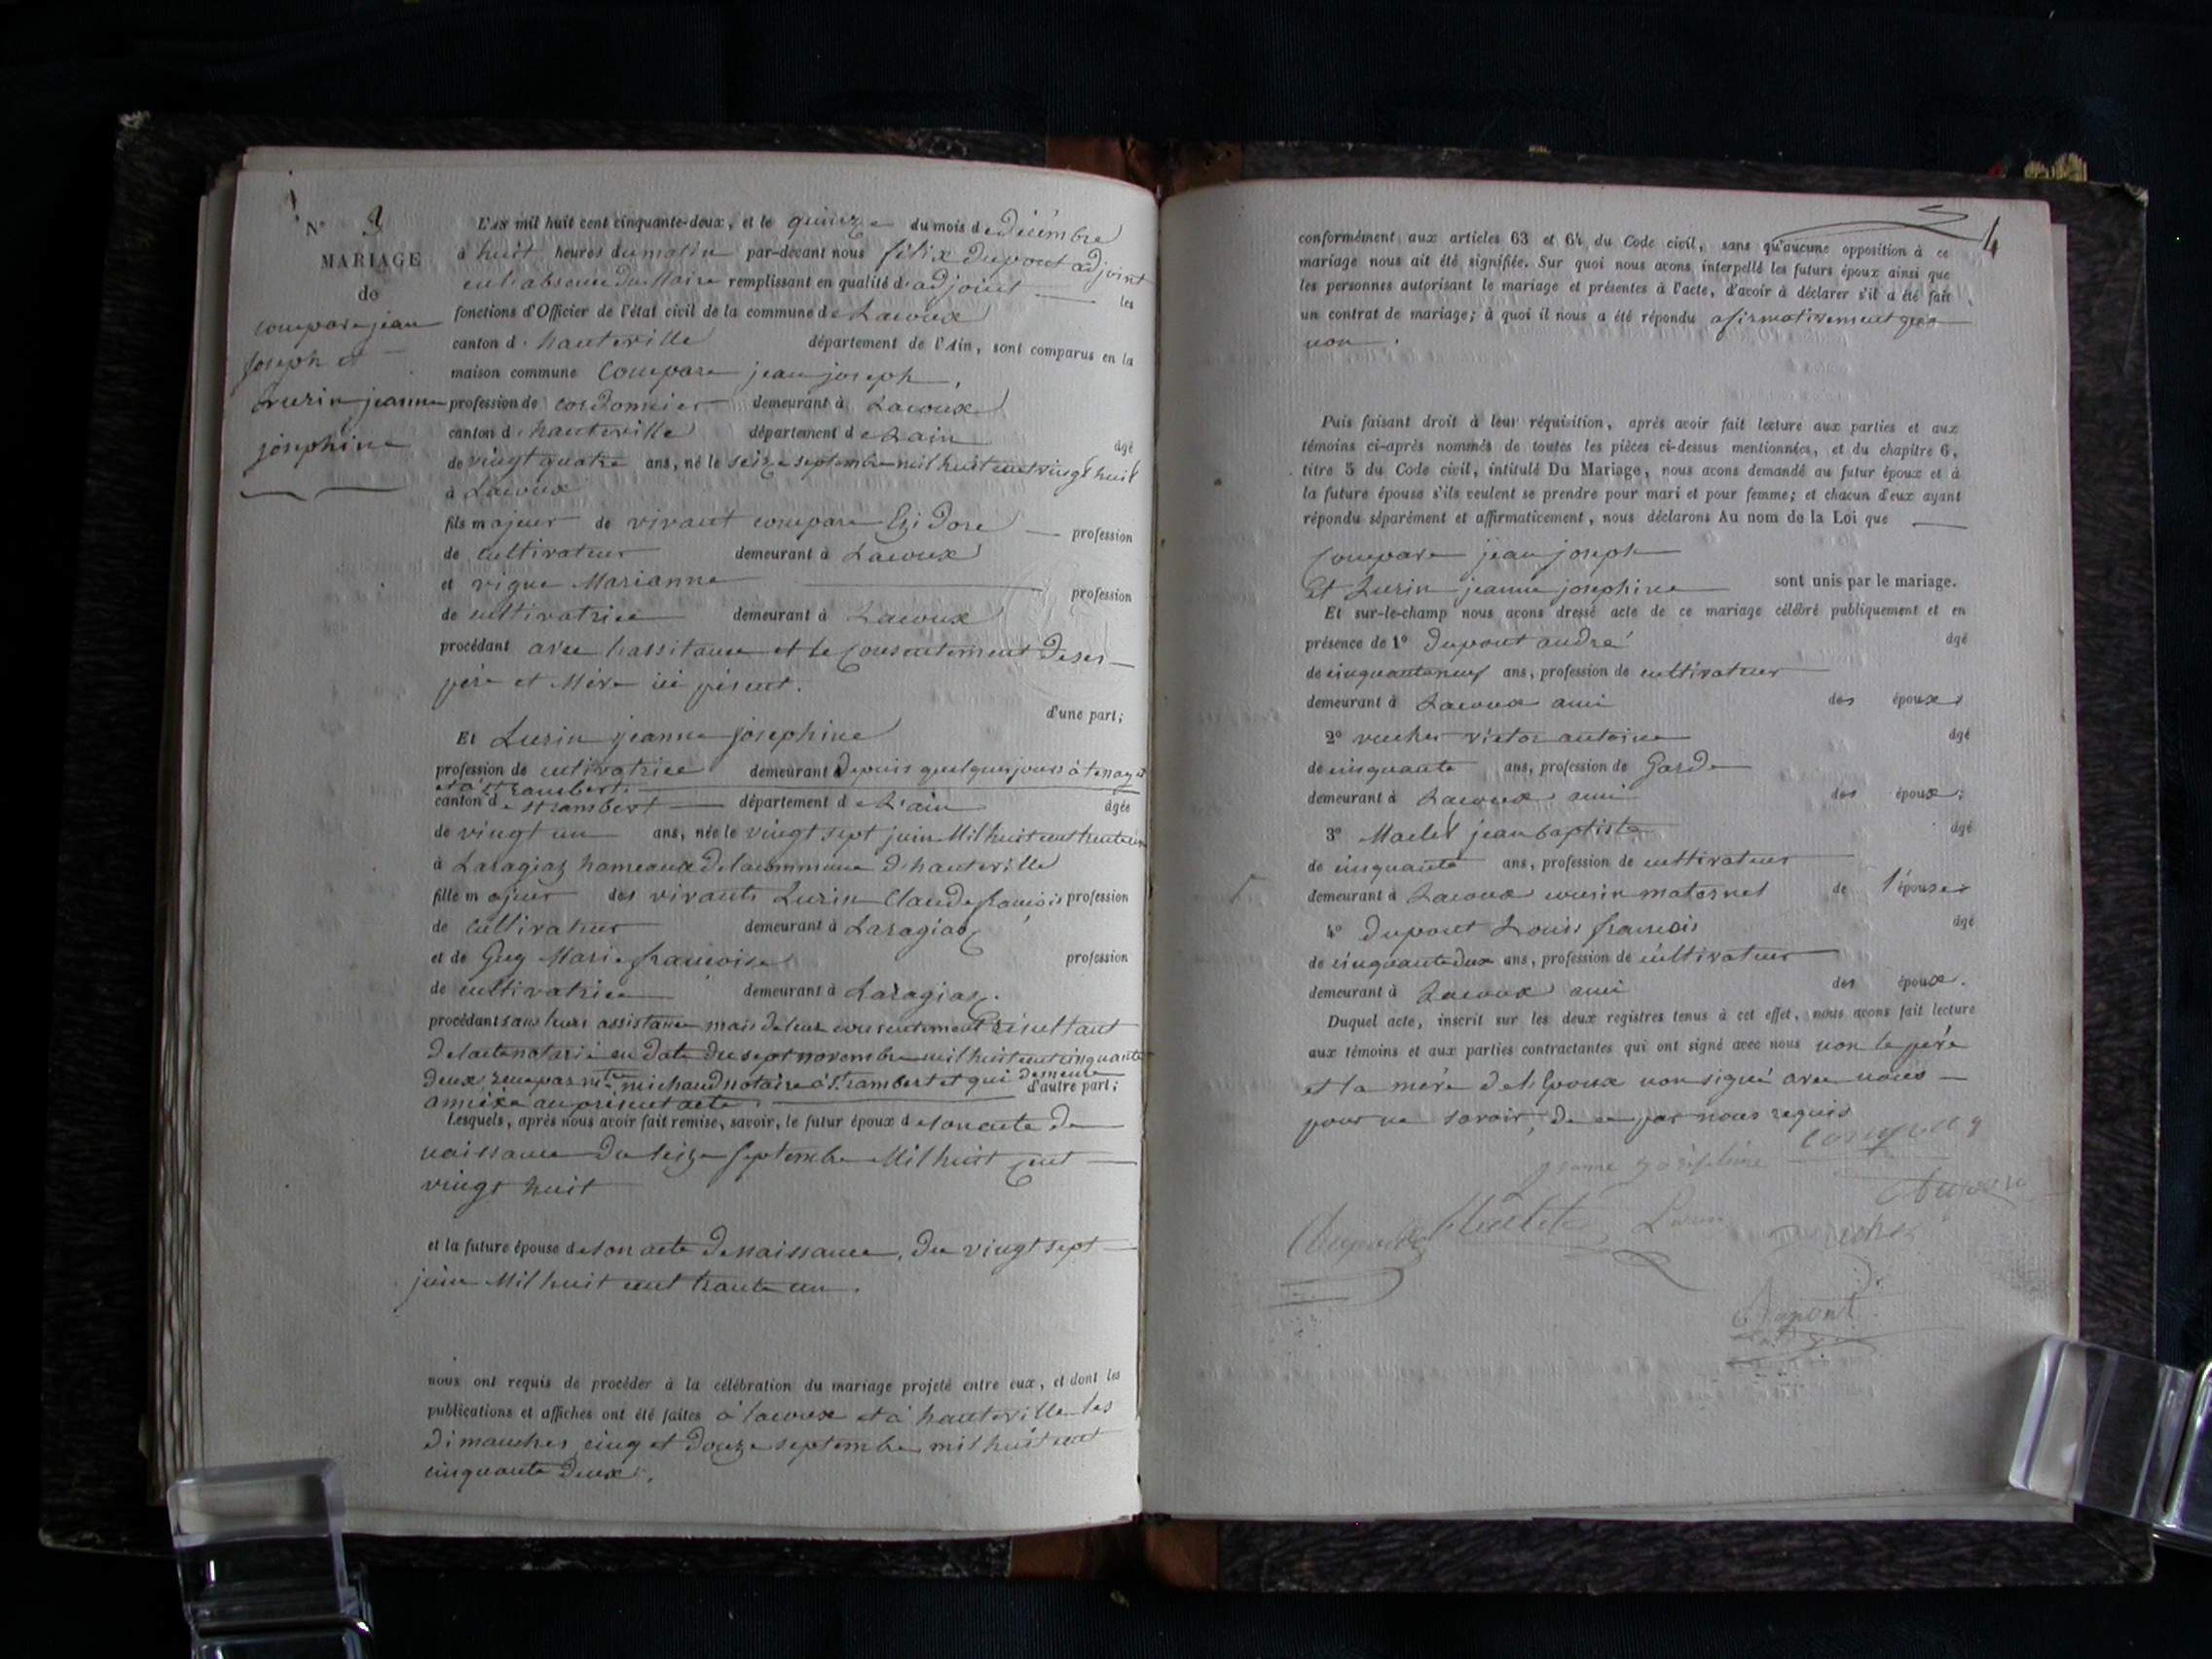 N° 3
MARIAGE
de
compare jean
joseph et
Lurin jeanne
josephine
L'AN mil huit cent cinquante-deux, et le quinze du mois de Décembre
à huit heures du matin par-devant nous félix dupont adjoint
en l'absence du Maire remplissant en qualité d'adjoint les
fonctions d'Officier de l'état civil de la commune de Lacoux
canton d. hauteville département de l'Ain, sont comparus en la
maison commune Compare jean joseph,
profession de cordonnier demeurant à Lacoux
canton d. hauteville département de Lain âgé
de vingt quatre ans, né le seize septembre mil huit cent vingt huit
à Lacoux
fils majeur de vivant compare Ezidore profession
de cultivateur demeurant à Lacoux
et vigue Marianne profession
de cultivatrice demeurant à Lacoux
procédant avec l'assitance et le Consentement de ses
père et Mère ici présent.
d'une part;
Et Lurin jeanne josephine
profession de cultivatrice demeurant depuis quelques jours à tenay
et à St rambert.
canton de St rambert département de L'ain âgée
de vingt un ans, née le vingt sept juin Mil huit cent trente un
à Lasagiaz hameaux de la commune d'hauteville
fille majeur des vivants Lurin Claude francois profession
de cultivateur demeurant à Lasagiaz
et de Guy Marie francoise profession
de cultivatrice demeurant à Lasagiaz.
procédant sans leurs assistance mais de leur consentement résultant
de l'acte notarié en date du sept novembre mil huit cent cinquante
deux reçu par mtre michaud notaire à St rambert et qui demeure
annéxé au présent acte d'autre part;
Lesquels, après nous avoir fait remise, savoir, le futur époux de son acte de
naissance du seize septembre Mil huit cent
vingt huit
et la future épouse de son acte de naissance, du vingt sept
juin Mil huit cent trente un.
nous ont requis de procéder à la célébration du mariage projeté entre eux, et dont les
publications et affiches ont été faites à lacoux et à hauteville les
dimanches cinq et douze septembre mil huit cent
cinquante deux.
4
conformément aux articles 63 et 64 du Code civil, sans qu'aucune opposition à ce
mariage nous ait été signifiée. Sur quoi nous avons interpellé les futurs époux ainsi que
les personnes autorisant le mariage et présentes à l'acte, d'avoir à déclarer s'il a été fait
un contrat de mariage; à quoi il nous a été répondu afirmativement que
non.
Puis faisant droit à leur réquisition, après avoir fait lecture aux parties et aux
témoins ci-après nommés de toutes les pièces ci-dessus mentionnées, et du chapitre 6,
titre 5 du Code civil, intitulé Du Mariage, nous avons demandé au futur époux et à
la future épouse s'ils veulent se prendre pour mari et pour femme; et chacun d'eux ayant
répondu séparément et affirmativement, nous déclarons Au nom de la Loi que
Compare jean joseph
Et Lurin jeanne josephine sont unis par le mariage.
Et sur-le-champ nous avons dressé acte de ce mariage célébré publiquement et en
présence de 1° dupont andré âgé
de cinquante neuf ans, profession de cultivateur
demeurant à Lacoux ami des époux
2° vucher victor antoine âgé
de cinquante ans, profession de Garde
demeurant à Lacoux ami des époux;
3° Maclet jean baptiste âgé
de cinquante ans, profession de cultivateur
demeurant à Lacoux cousin maternel de l'épouse
4° dupont Louis francois âgé
de cinquante deux ans, profession de cultivateur
demeurant à Lacoux ami des époux.
Duquel acte, inscrit sur les deux registres tenus à cet effet, nous avons fait lecture
aux témoins et aux parties contractantes qui ont signé avec nous non le père
et la mère de l'Epoux non signé avec nous
pour ne savoir, de ce par nous requis
Dupont